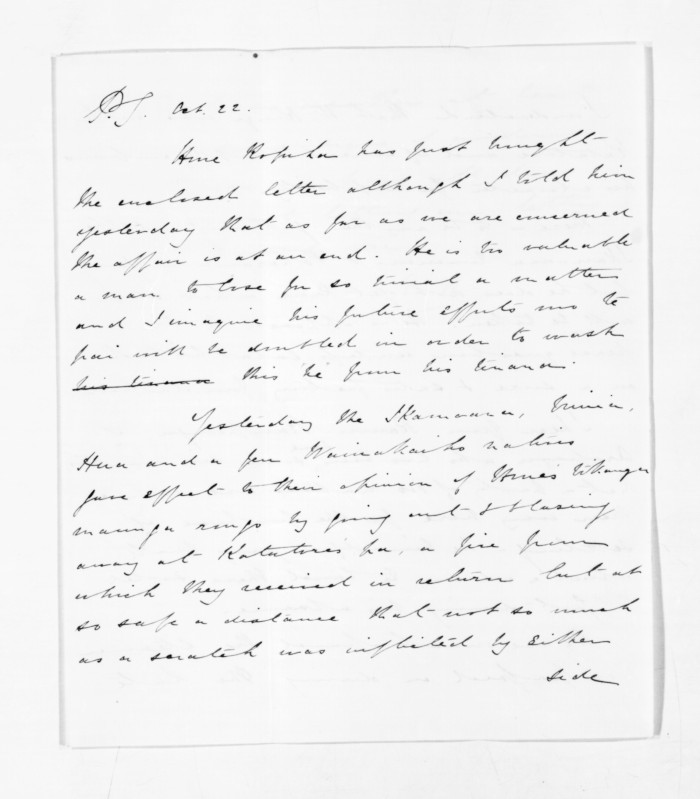 P.S. Oct. 22.
Hone Ropiha has just brought
the enclosed letter although I told him
yesterday that as far as we are concerned
the affair is at an end. He is too valuable
a man to lose for so trivial a matter
and I imagine his future efforts mo te
pai will be doubled in order to wash
his tinana this he from his tinana.
Yesterday the Ikamoana,
Hua and a few Waiwakaiho natives
gave effect to their opinion of Hone's tikanga
maunga rongo by going out & blasing
away at Katatore's pa, a fire from
which they received in return but at
so safe a distance that not so much
as a scratch was inflicted by either
side